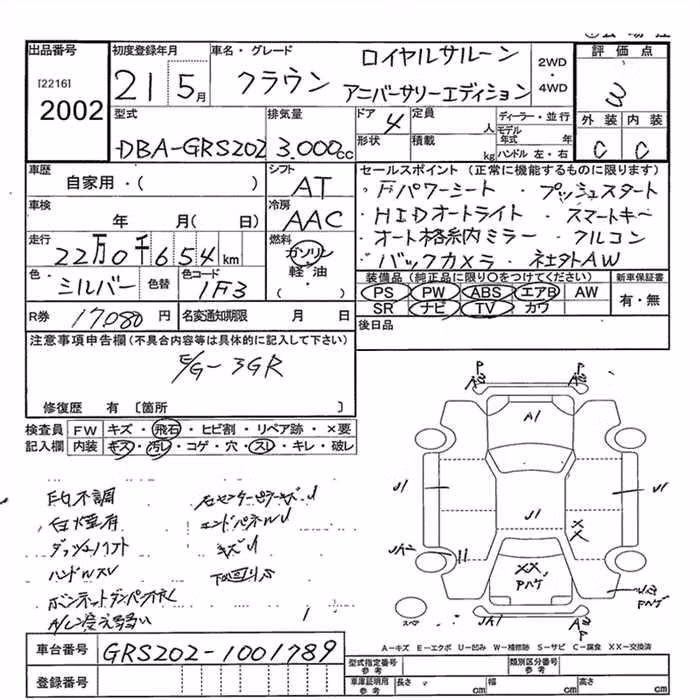 出品番号
[2216]
2002
初度登録年月
21 5月
車名・グレード
クラウン
ロイヤルサルーン
アニバーサリーエディション
2WD
・
4WD
評価点
3
外装 内装
C C
型式
DBA-GRS202
排気量
3.000cc
ドア 4
定員 人
形状
積載 kg
ディーラー・並行
モデル年式 年
ハンドル 左・右
車歴
自家用・( )
シフト
AT
車検
年 月( 日)
冷房
AAC
走行
22万0千654km
燃料
ガソリン
・
軽油
・
( )
色・
シルバー
色替
色コード
1F3
R券 17,080円
名変通知期限 月 日
セールスポイント(正常に機能するものに限ります)
・パワーシート ・プッシュスタート
・HIDオートライト ・スマートキー
・オート格納ミラー ・フルコン
・バックカメラ ・社外AW
装備品(純正品に限り○をつけてください)
PS PW ABS エアB AW
SR ナビ TV カワ
新車保証書
有・無
後日品
注意事項申告欄(不具合内容等は具体的に記入して下さい)
E/G-3GR
修復歴 有〔箇所 〕
検査員記入欄
FW キズ・飛石・ヒビ割・リペア跡・×要
内装 キズ・汚レ・コゲ・穴・スレ・キレ・破レ
E/G不調
白煙有
ダッシュハフト
ハンドルスレ
A/C冷え弱い
エンドパネルU
キズU
P
A3
P
A3
A1
U1
U1
U1
UA2
XX
XX
Pハゲ
Pハゲ
UA1
スペア
A-キズ E-エクボ U-凹み W-補修跡 S-サビ C-腐食 XX-交換済
車台番号
GRS202-1001789
登録番号
型式指定番号
参考
類別区分番号
参考
車庫証明用
参考
長さ cm
幅 cm
高さ cm